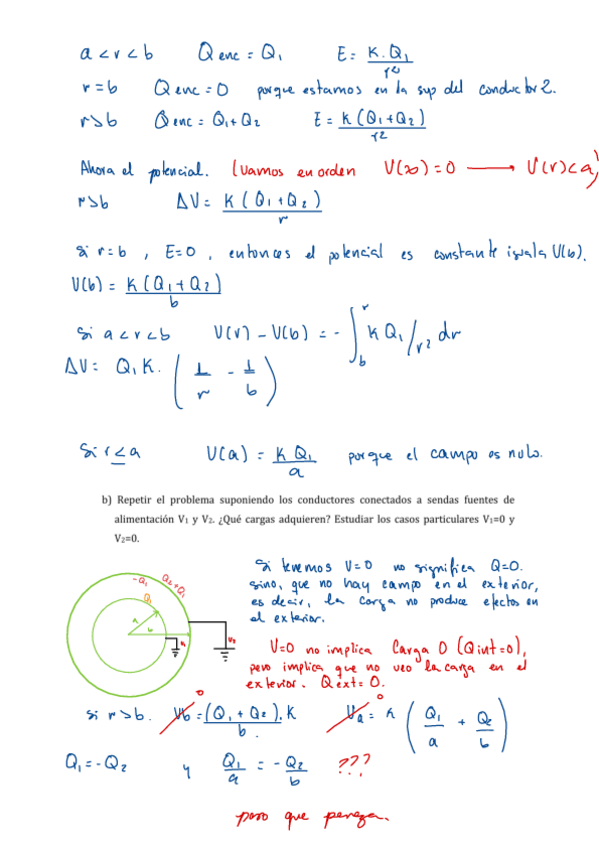 a < r < b Q enc = Q₁ E = K·Q₁ / r²
r = b Q enc = 0 porque estamos en la sup del conductor 2.
r > b Q enc = Q₁ + Q₂ E = K (Q₁ + Q₂) / r²
Ahora el potencial. (Vamos en orden V(∞) = 0 → V(r) < a)
r > b ΔV = K (Q₁ + Q₂) / r
Si r = b , E = 0 , entonces el potencial es constante igual a V(b).
V(b) = K (Q₁ + Q₂) / b
Si a < r < b V(r) - V(b) = - ∫_b^r K Q₁ / r² dr
ΔV = Q₁ K. ( 1/r - 1/b )
Si r ≤ a V(a) = K Q₁ / a porque el campo es nulo.
b) Repetir el problema suponiendo los conductores conectados a sendas fuentes de
alimentación V₁ y V₂. ¿Qué cargas adquieren? Estudiar los casos particulares V₁=0 y
V₂=0.
Si tenemos V=0 no significa Q=0.
sino, que no hay campo en el exterior,
es decir, la carga no produce efectos en
el exterior.
-Q₁ Q₂+Q₁
Q₁
a
b
V=0 no implica Carga 0 (Qint=0),
pero implica que no veo la carga en el
exterior. Qext=0.
si r > b. Vb = (Q₁ + Q₂).K / b. 0 Va = K ( Q₁/a + Q₂/b ) 0
Q₁ = -Q₂ y Q₁/a = - Q₂/b ???
pero que pereza.